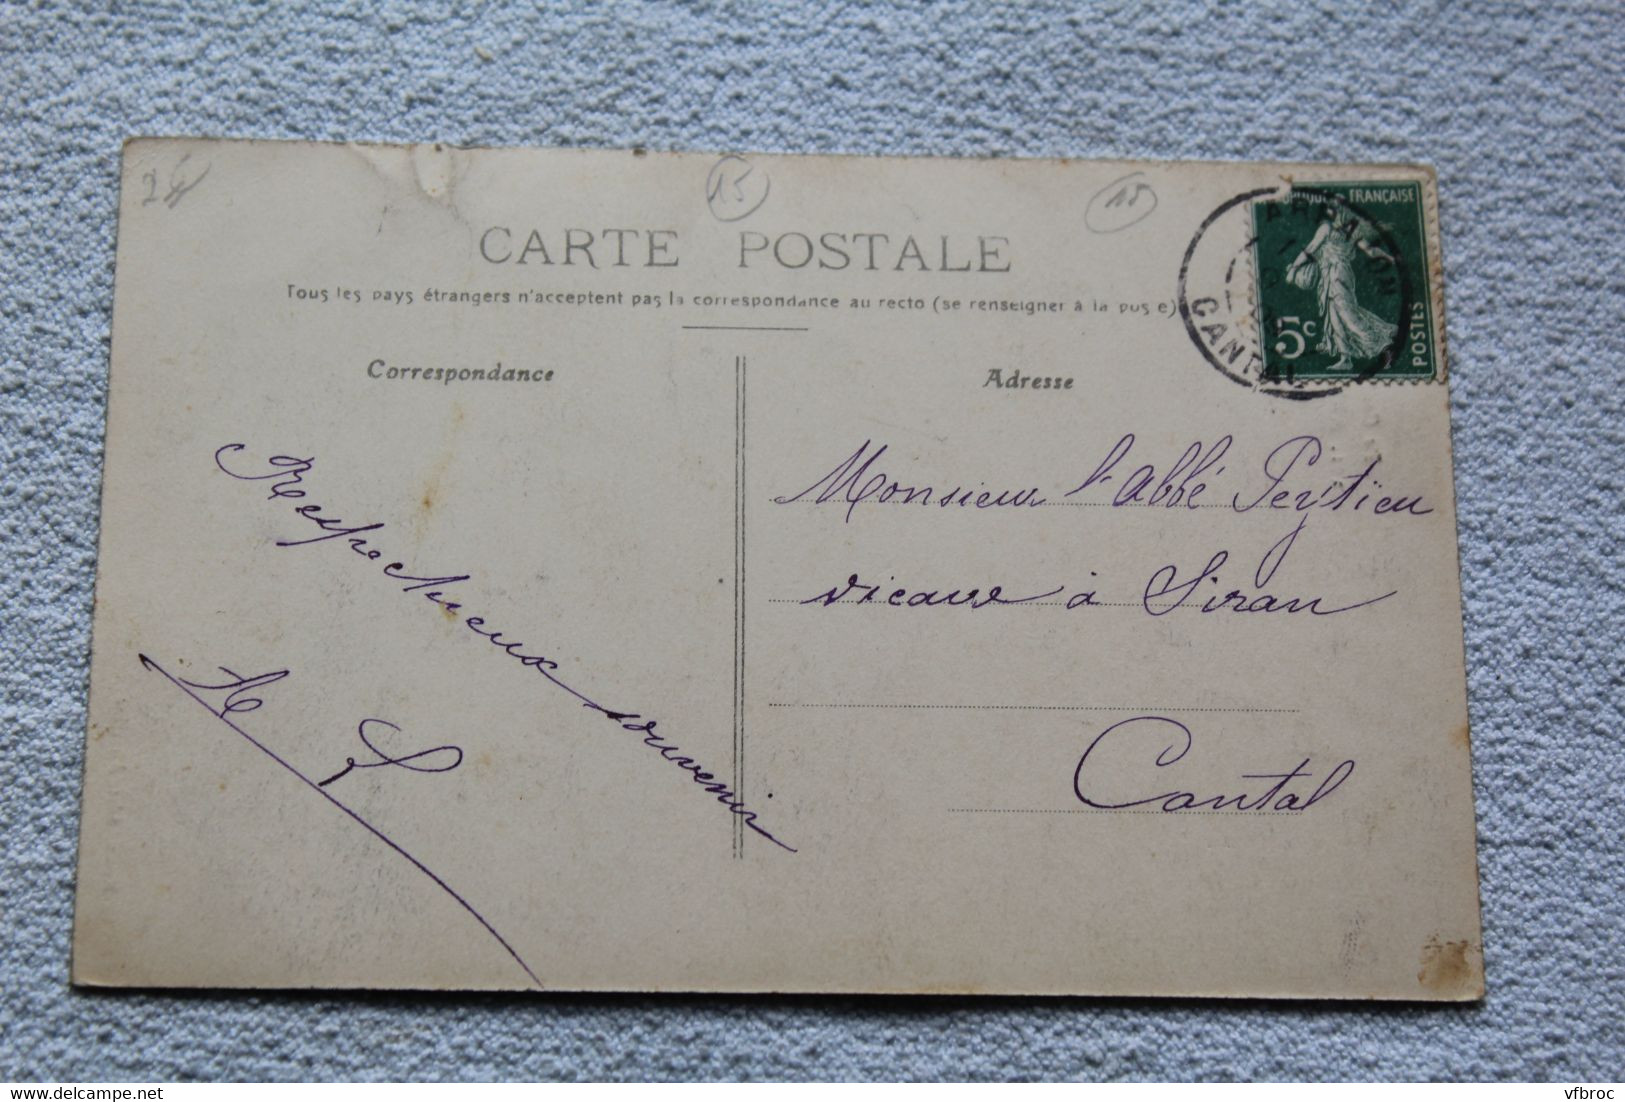 24
15
15
CARTE POSTALE
Tous les pays étrangers n'acceptent pas la correspondance au recto (se renseigner à la pos e)
Correspondance
Adresse
FRANÇAISE
5c
POSTES
CANTAL
Monsieur l'abbé Peytieu
vicaire à Siran
Cantal
Respectueux souvenir
delcampe.net
vfbroc